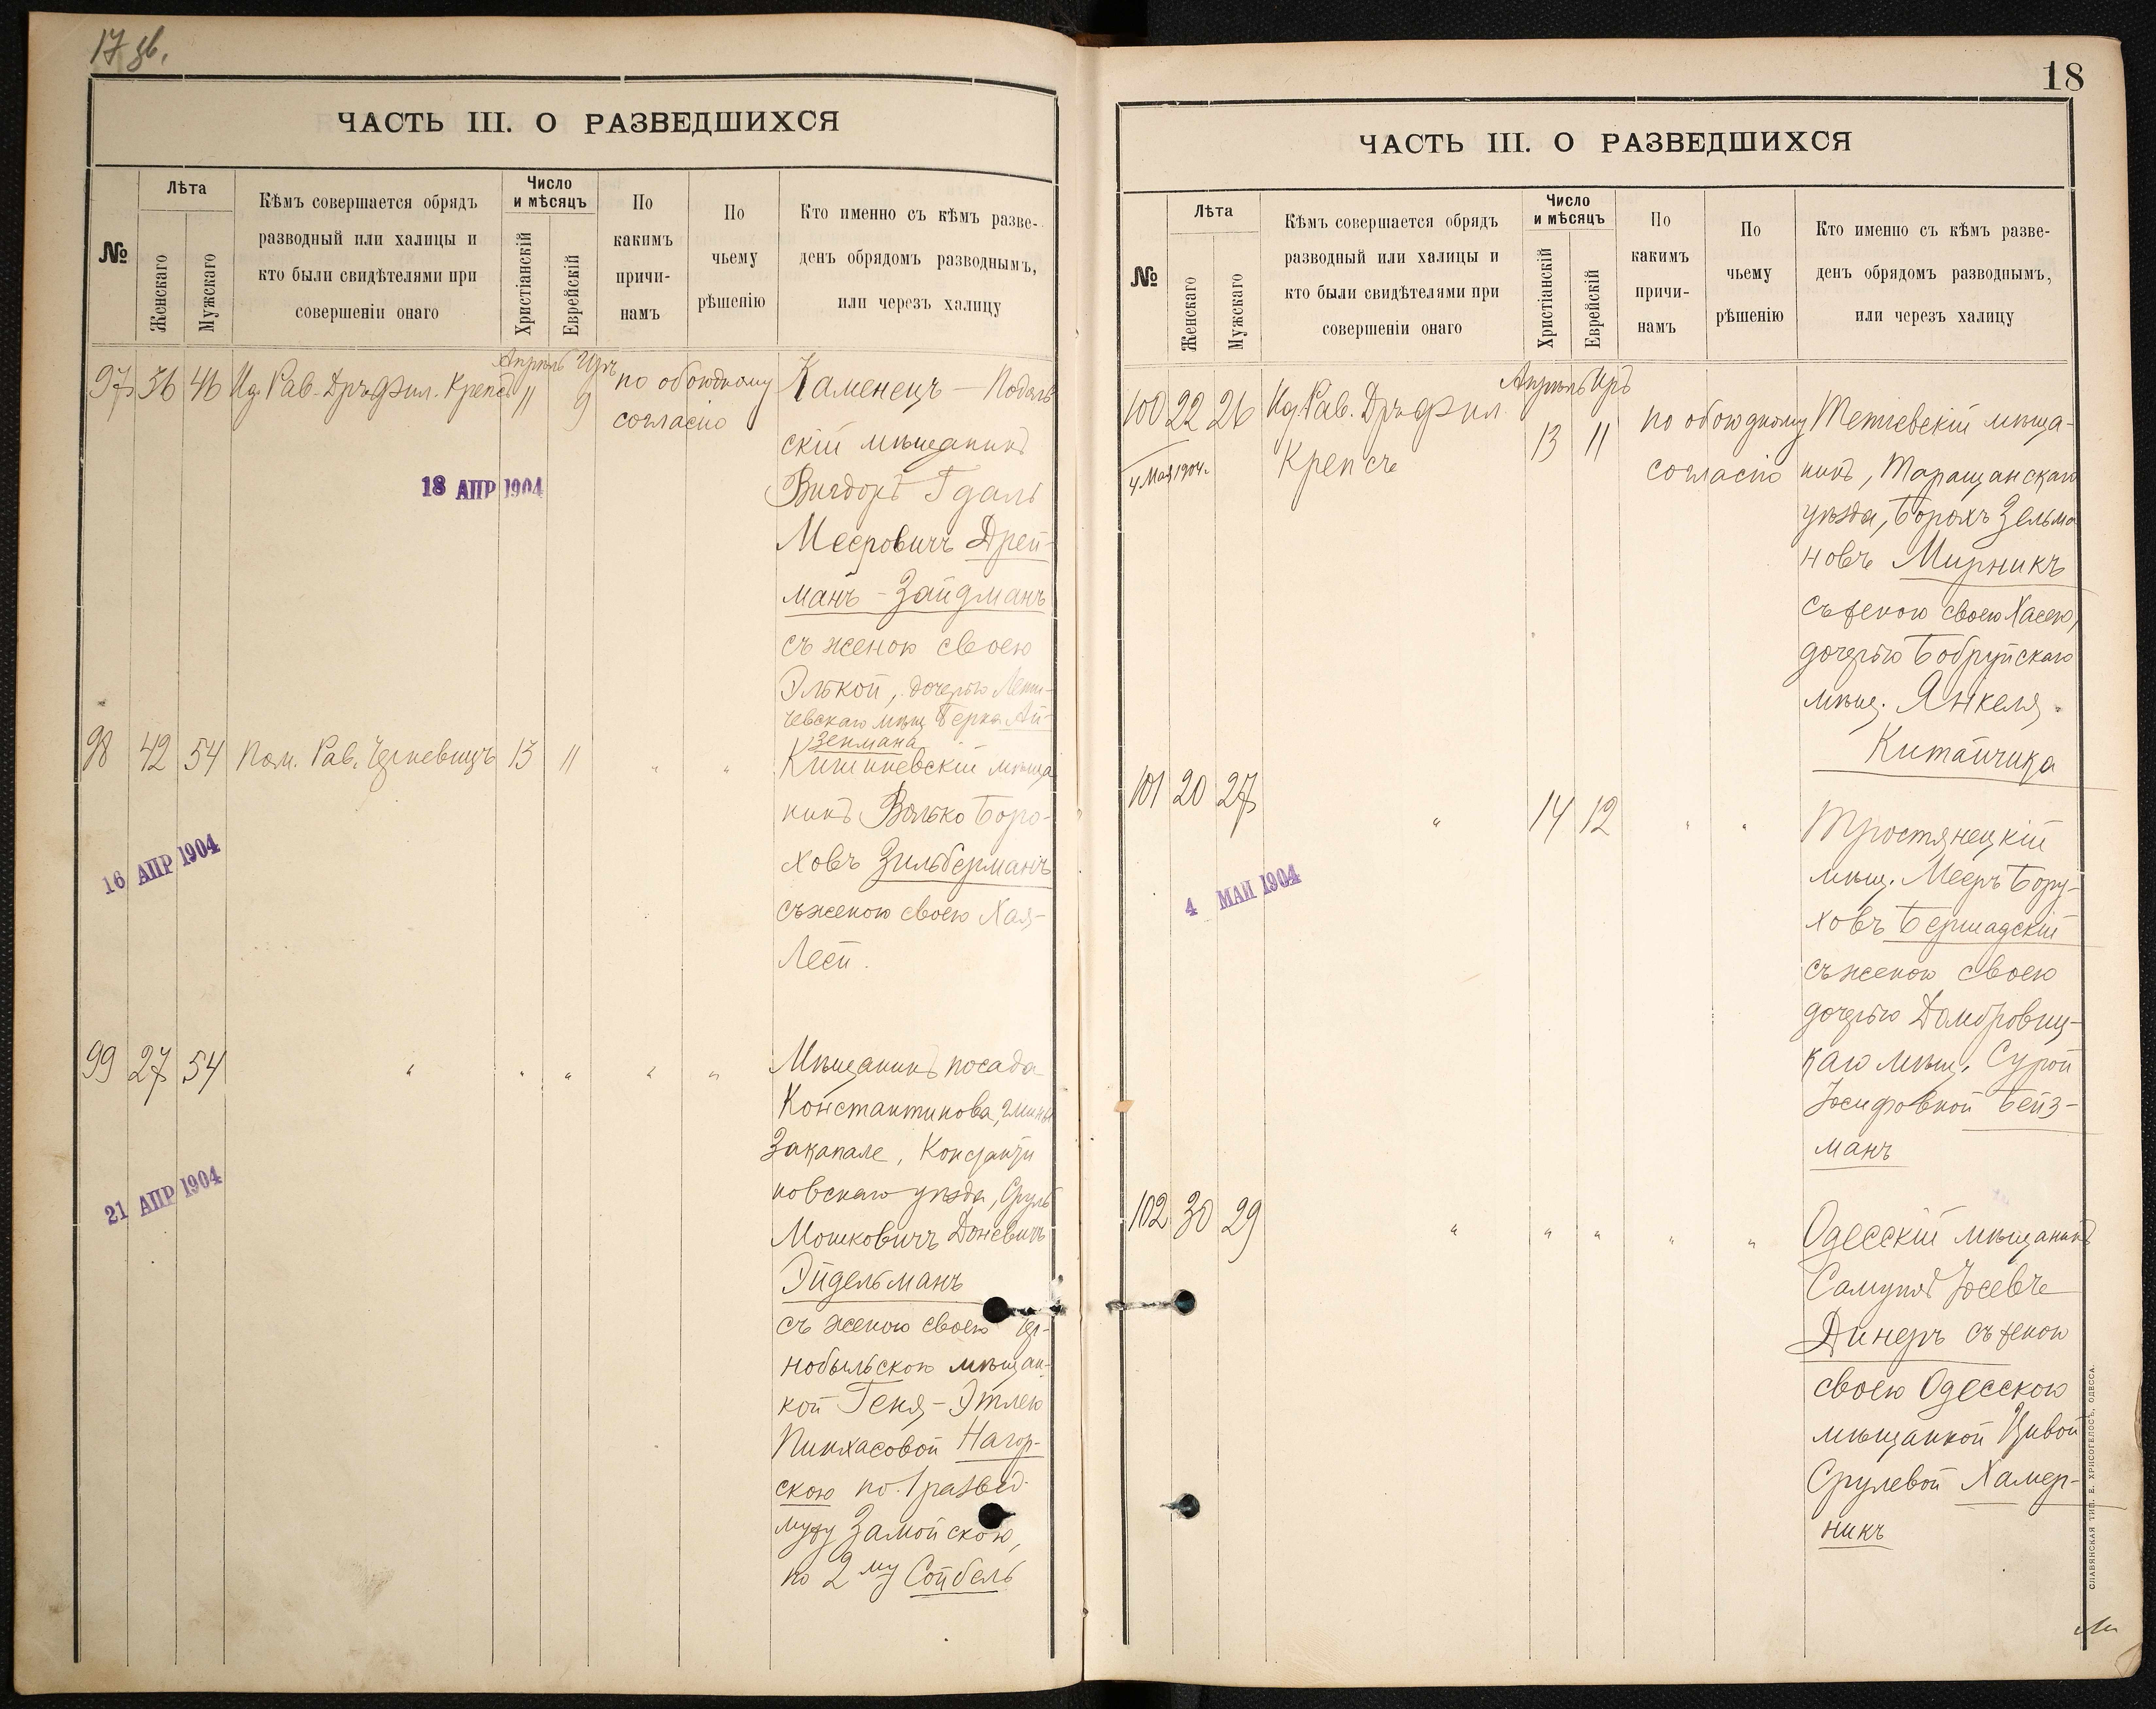 17 зв.
ЧАСТЬ III. О РАЗВЕДШИХСЯ
№
Лѣта
Женскаго
Мужскаго
Кѣмъ совершается обрядъ
разводный или халицы и
кто были свидѣтелями при
совершеніи онаго
Число
и мѣсяцъ
Христіанскій
Еврейскій
По
какимъ
причи-
намъ
По
чьему
рѣшенію
Кто именно съ кѣмъ разве-
денъ обрядомъ разводнымъ,
или черезъ халицу
Апрѣль Іръ
97 36 46 Рав. Дръ Фил. Крепсъ 11 9 по обоюдному
согласію
18 АПР 1904
Каменецъ-Подоль
скій мѣщанинъ
Вигдоръ Гдаль
Мееровичъ Дрей-
манъ-Зайдманъ
съ женою своею
Элькой, дочерью Лети-
чевскаго мѣщ. Берка Ай-
зенмана
98 42 54 Пом. Рав. Черкевицъ 13 11 " "
16 АПР 1904
Кишиневскій мѣща
нинъ Волько Боро-
ховъ Зильберманъ
съ женою своею Хая-
Леей.
99 27 54 " " " " "
21 АПР 1904
Мѣщанинъ посада
Константинова, гмины
Закапале, Константи
новскаго уѣзда, Сруль
Мошковичъ
Эйдельманъ
съ женою своею Чер-
нобыльскою мѣщан-
кой Геня-Этлею
Пинхасовой Нагор-
скою по 1 развед.
мужу Замойскою,
по 2му Сойбель
18
ЧАСТЬ III. О РАЗВЕДШИХСЯ
№
Лѣта
Женскаго
Мужскаго
Кѣмъ совершается обрядъ
разводный или халицы и
кто были свидѣтелями при
совершеніи онаго
Число
и мѣсяцъ
Христіанскій
Еврейскій
По
какимъ
причи-
намъ
По
чьему
рѣшенію
Кто именно съ кѣмъ разве-
денъ обрядомъ разводнымъ,
или черезъ халицу
Апрѣль Іръ
100 22 26 Рав. Дръ Фил.
Крепсъ 13 11 по обоюдному
согласію
4 Мая 1904г.
Тетіевскій мѣща-
нинъ, Таращанскаго
уѣзда, Борохъ Зельма
новъ Мирникъ
съ женою своею Хасею,
дочерью Бобруйскаго
мѣщ. Янкеля
Китайчика
101 20 27 " 14 12 " "
4 МАЙ 1904
Тростянецкій
мѣщ. Мееръ Бору-
ховъ Бершадскій
съ женою своею
дочерью Домбровиц-
каго мѣщ. Сурой
Іосифовной Бейз-
манъ
102 30 29 " " " " "
Одесскій мѣщанинъ
Самуилъ Іосевъ
Динеръ съ женою
своею Одесскою
мѣщанкой Цивой
Срулевой Хамер-
никъ
СЛАВЯНСКАЯ ТИП. Е. ХРИСОГЕЛОСЪ, ОДЕССА.